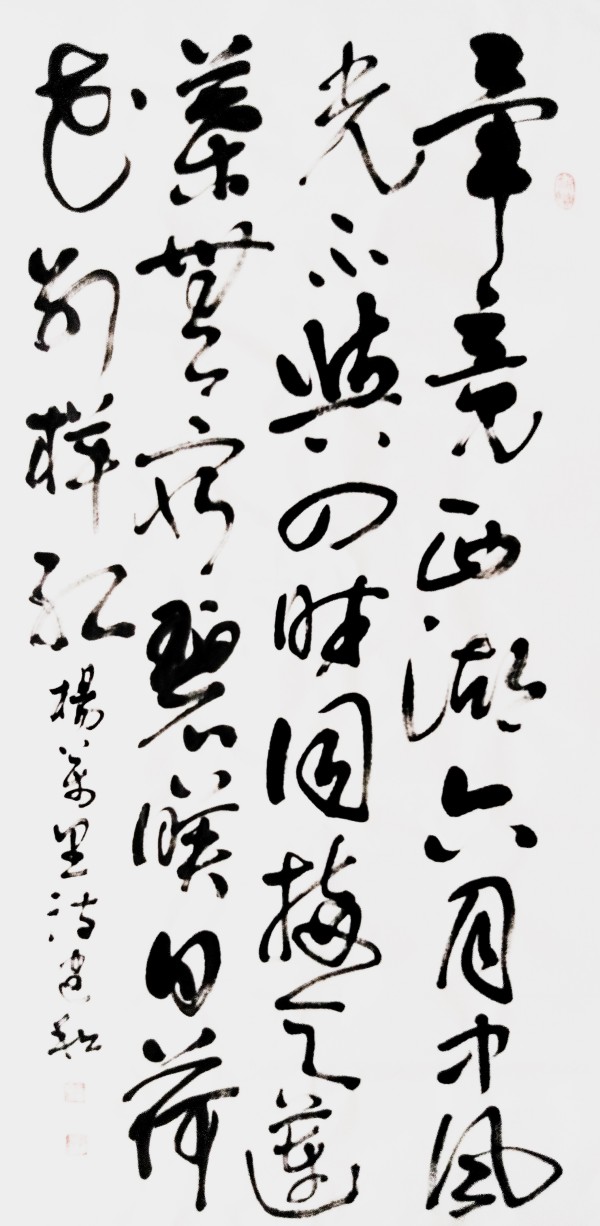 畢竟西湖六月中風
光不與四時同接天蓮
葉無窮碧暎日荷
花別樣紅
楊萬里詩建